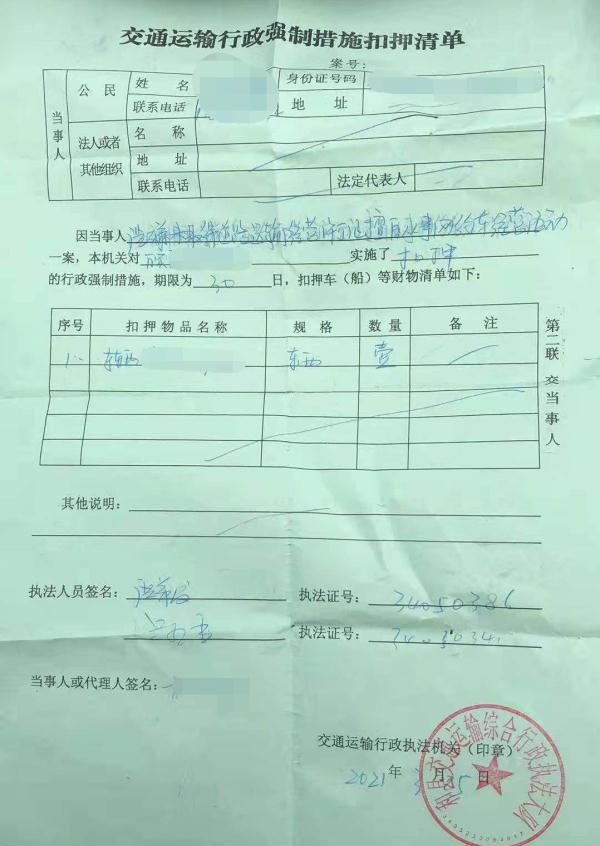 交通运输行政强制措施扣押清单
案号:
当事人
公民 姓名 身份证号码
联系电话 地址
法人或者其他组织 名称
地址
联系电话 法定代表人
因当事人 涉嫌未取得 运输经营许可证擅自从事网约车经营活动
一案，本机关对 实施了 扣押
的行政强制措施，期限为 30 日，扣押车（船）等财物清单如下：
序号 扣押物品名称 规格 数量 备注
1 东西 壹
第二联 交当事人
其他说明：
执法人员签名： 执法证号： 34050386
执法证号：
当事人或代理人签名：
交通运输行政执法机关（印章）
2021年3月25日
和县交通运输综合行政执法大队